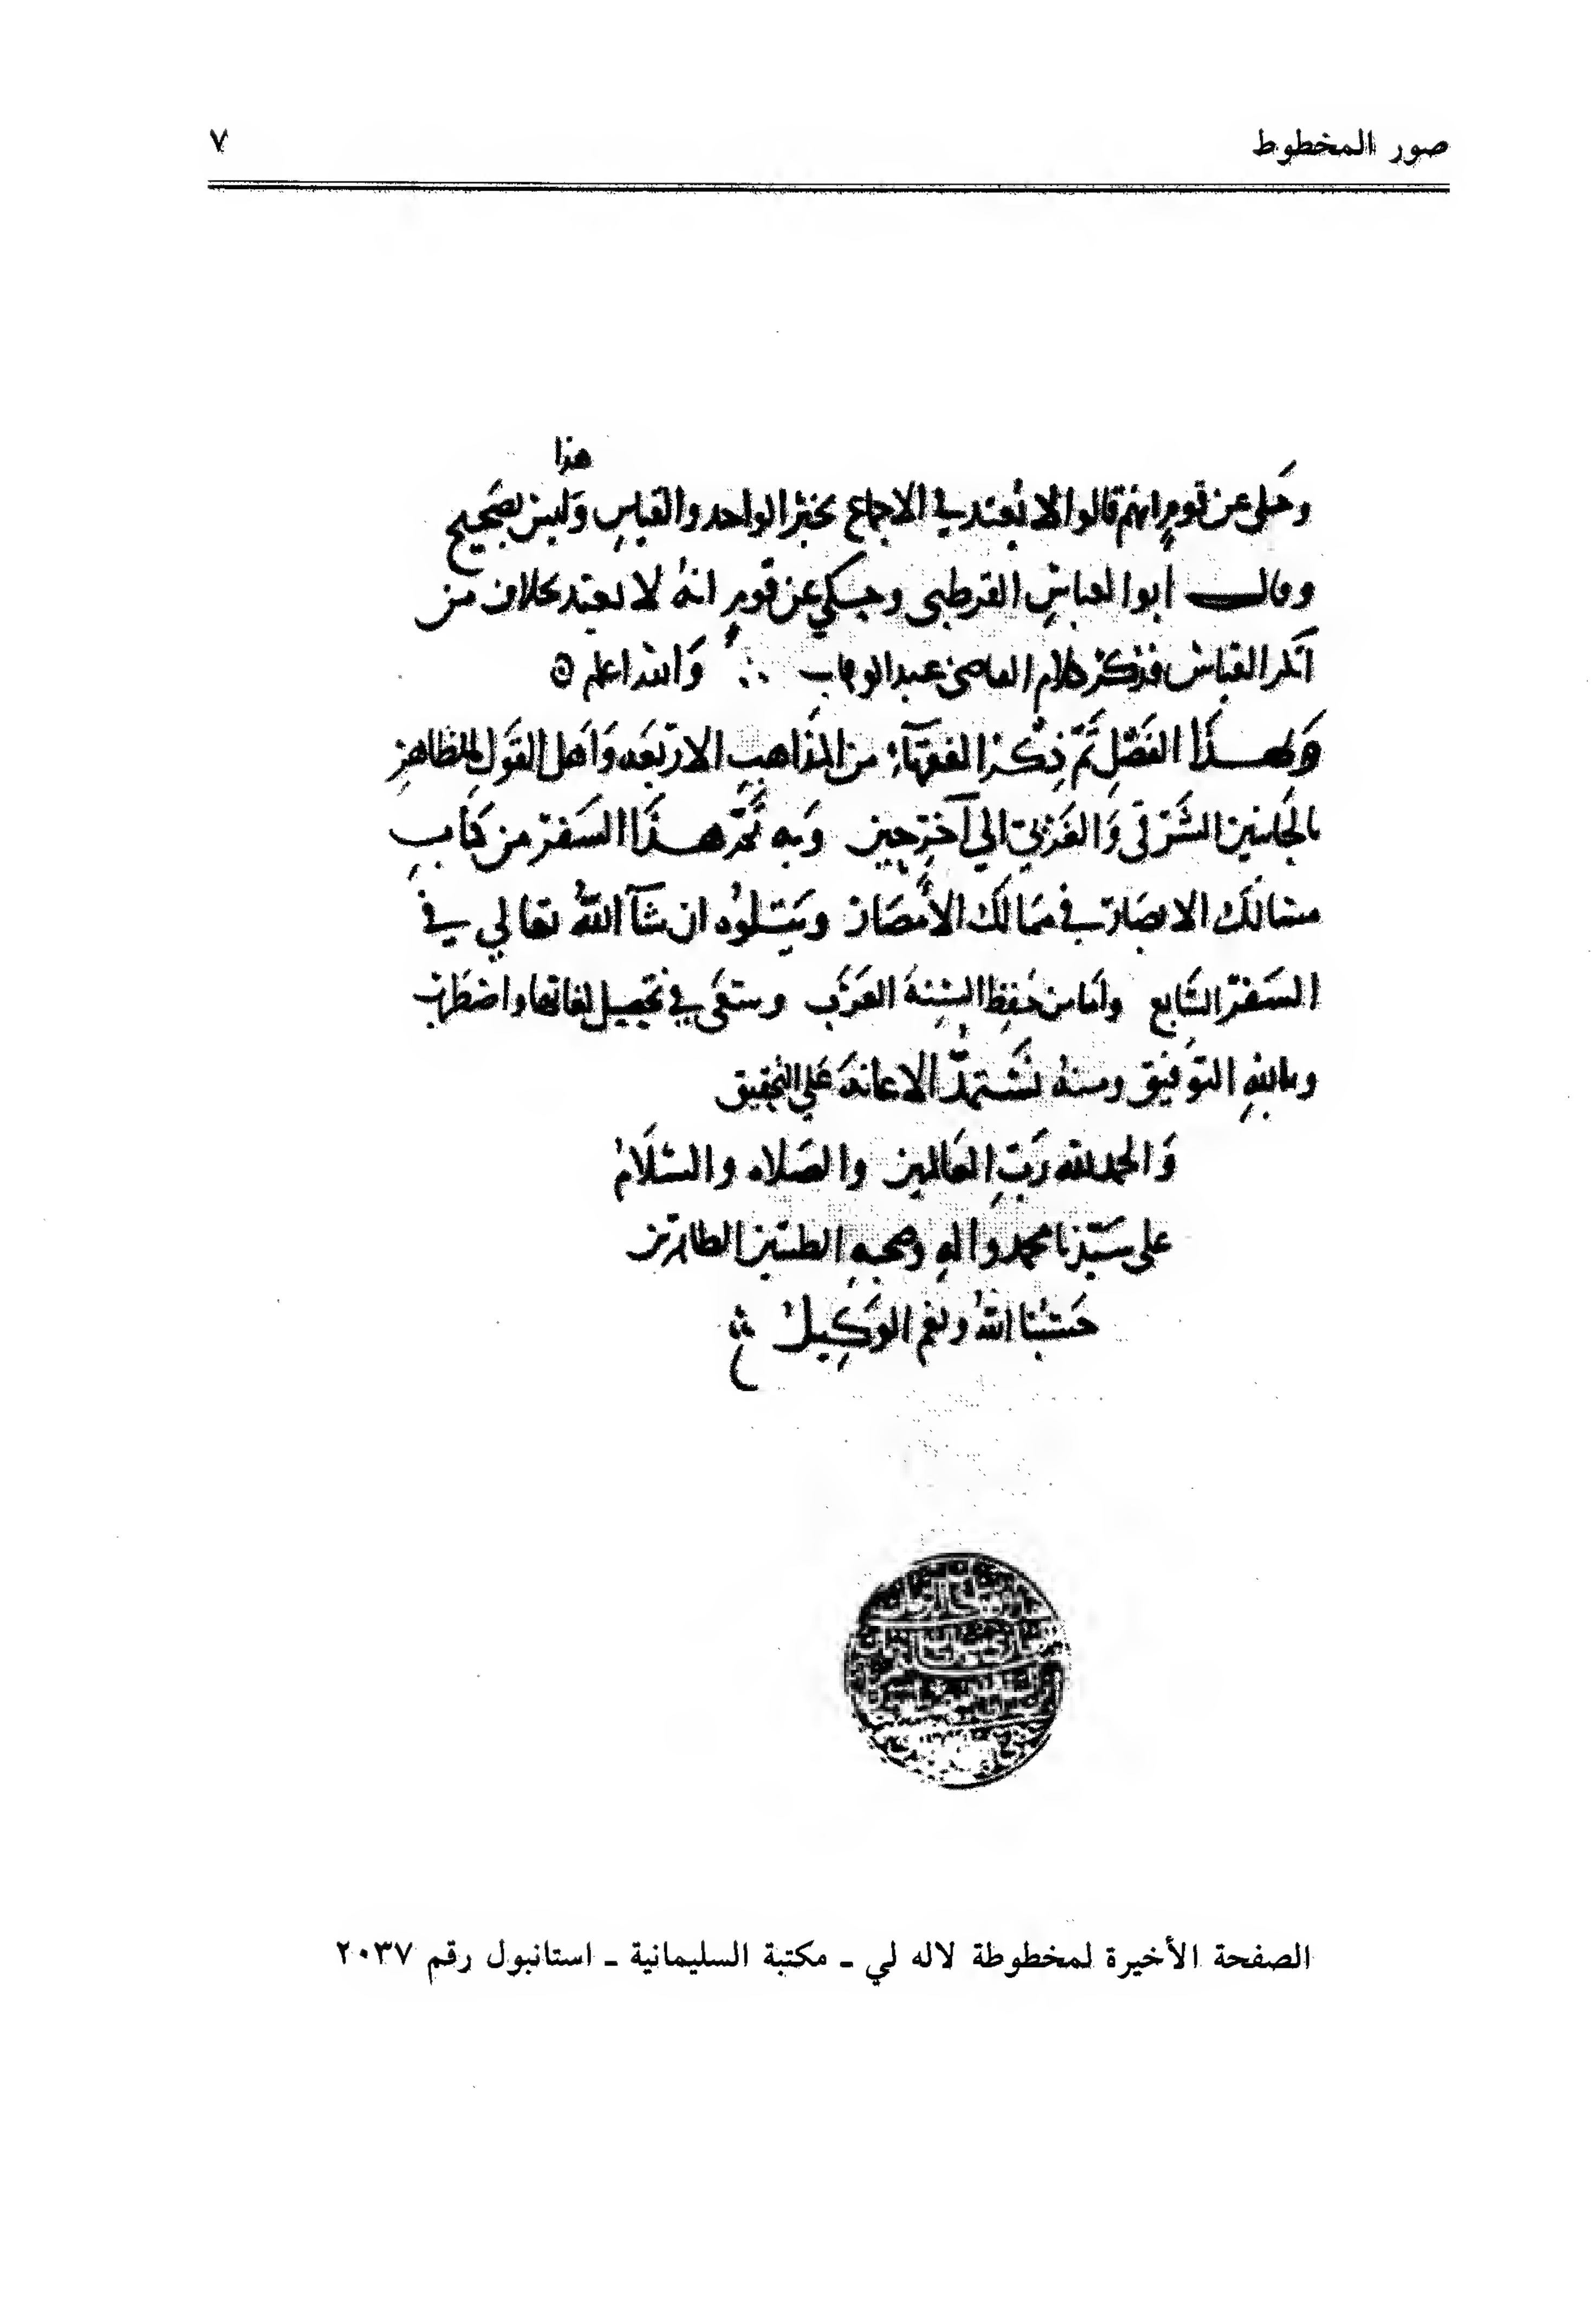 صور المخطوط
٧
هذا
وحكى عن قوم انهم قالوا لا يعتد في الاجماع بخبر الواحد والقياس وليس بصحيح
وقال أبو العباس القرطبي وحكي عن قوم انه لا يعتد بخلاف من
انكر القياس فذكر كلام القاضى عبد الوهاب ∴ وَالله اعلم
وَبهذا الفَصْلِ تَمّ ذِكْر الفقهآءِ من المذاهب الاربَعَه وَاهل القَول بالظاهر
بالجانبين الشَرقي وَالغَربيّ الي آخر حين وَبه تمّ هذا السَفر من كتابِ
مسَالك الابصَار في ممَالك الأمصَار ويَتلوُه ان شآ اللهُ تعالي في
السَفر السَّابع وامَا من حَفِظ السِنة العَرَب وسعَى في تحصيل لغاتها واضطَراب
وباللهِ التوفيق ومنهُ نَسْتمدّ الاعانَة عَلي التحقيق
وَالحمد لله رَبّ العَالمين والصَلاه والسَّلام
على سَيّدنا محمد والهِ وصحبهِ الطيبين الطاهرين
حَسْبُنا اللهُ ونعم الوَكِيل
الصفحة الأخيرة لمخطوطة لاله لي ـ مكتبة السليمانية ـ استانبول رقم ٢٠٣٧